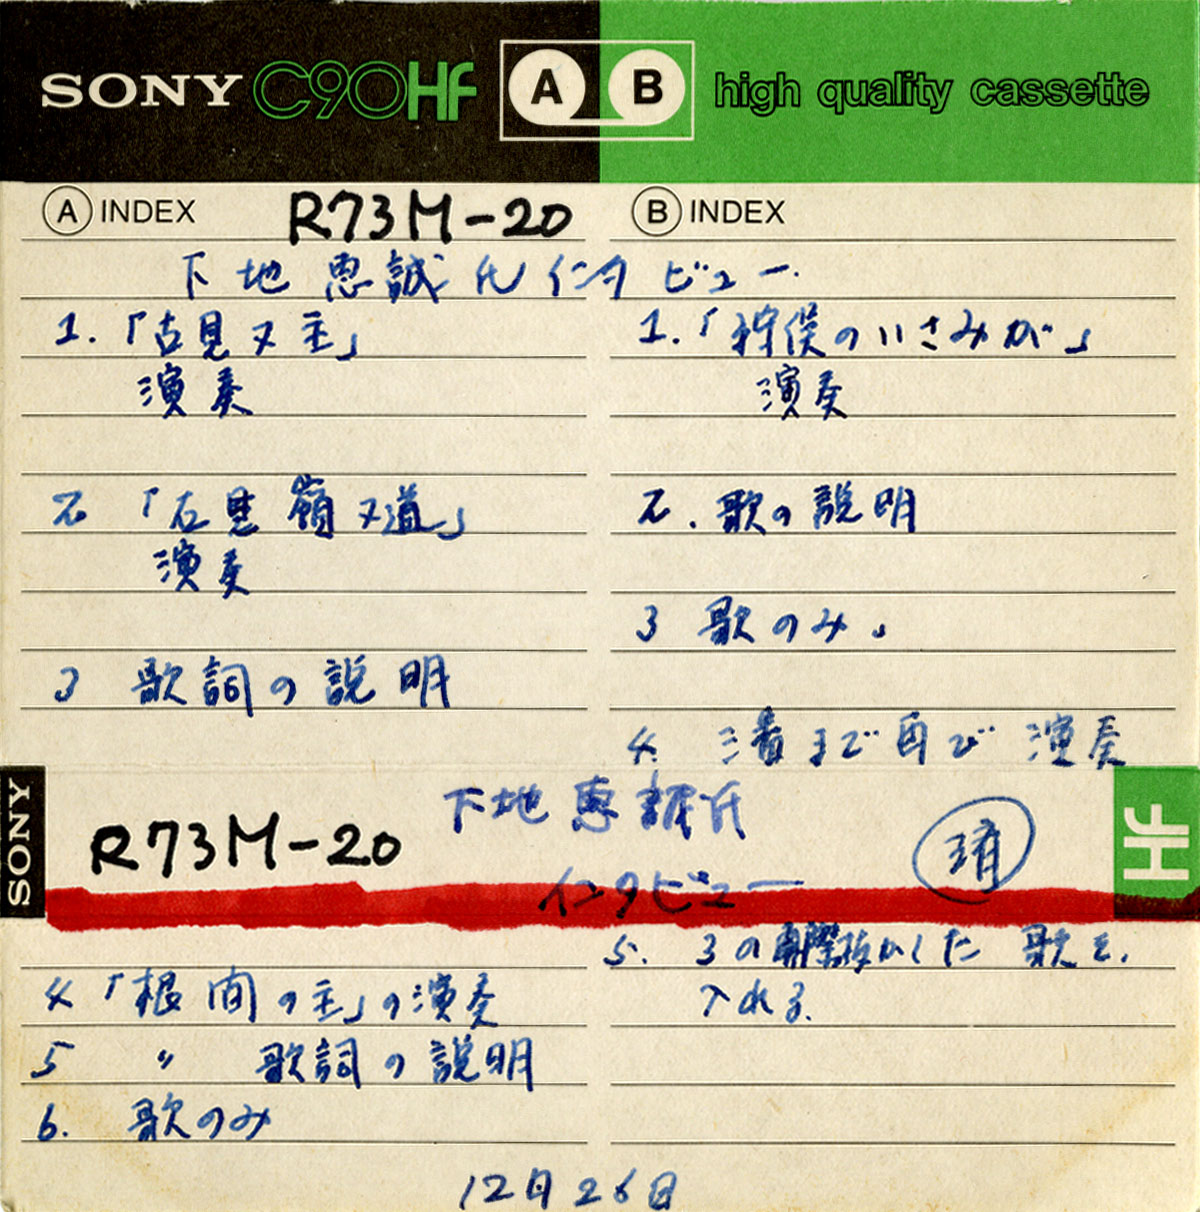 SONY C90HF A B high quality cassette
A INDEX R73M-20
下地恵誠氏インタビュー
1.「古見ヌ主」
演奏
2 「古見嶺ヌ道」
演奏
3 歌詞の説明
B INDEX
1.「狩俣のいさみが」
演奏
2. 歌の説明
3 歌のみ。
4. 三番まで再び演奏
SONY
R73M-20
下地恵誠氏
インタビュー
HF
4 「根間の主」の演奏
5 〃 歌詞の説明
6. 歌のみ
5. 3の 抜かした歌を、
入れる.
12月26日